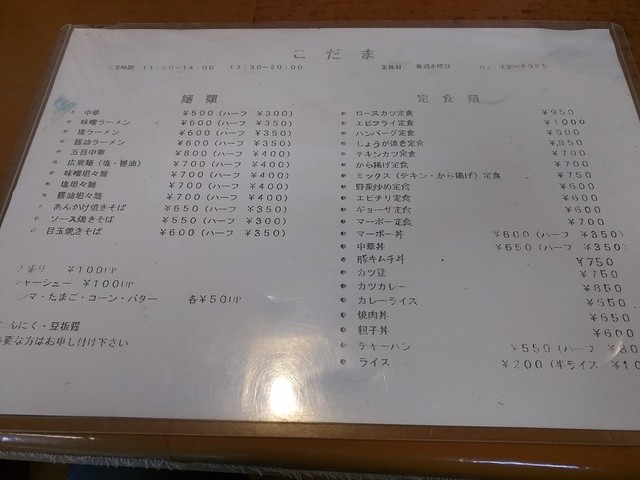 こだま
営業時間 11:00~14:00 17:30~20:00 定休日 毎週水曜日
麺類
中華 ¥500(ハーフ ¥300)
味噌ラーメン ¥600(ハーフ ¥350)
塩ラーメン ¥600(ハーフ ¥350)
醤油ラーメン ¥600(ハーフ ¥350)
五目中華 ¥800(ハーフ ¥400)
広東麺(塩・醤油) ¥700(ハーフ ¥400)
味噌坦々麺 ¥700(ハーフ ¥400)
塩坦々麺 ¥700(ハーフ ¥400)
醤油坦々麺 ¥700(ハーフ ¥400)
あんかけ焼きそば ¥650(ハーフ ¥350)
ソース焼きそば ¥550(ハーフ ¥300)
目玉焼きそば ¥600(ハーフ ¥350)
¥100UP
チャーシュー ¥100UP
・たまご・コーン・バター 各¥50UP
にんにく・豆板醤
必要な方はお申し付け下さい
定食類
ロースカツ定食 ¥950
エビフライ定食 ¥1000
ハンバーグ定食 ¥900
しょうが焼き定食 ¥850
チキンカツ定食 ¥700
から揚げ定食 ¥700
ミックス(チキン・から揚げ)定食 ¥750
野菜炒め定食 ¥600
エビチリ定食 ¥600
ギョーザ定食 ¥600
マーボー定食 ¥700
マーボー丼 ¥600(ハーフ ¥350)
中華丼 ¥650(ハーフ ¥350)
豚キムチ丼 ¥750
カツ丼 ¥750
カツカレー ¥850
カレーライス ¥550
焼肉丼 ¥650
親子丼 ¥600
チャーハン ¥550(ハーフ
ライス ¥200(半ライス